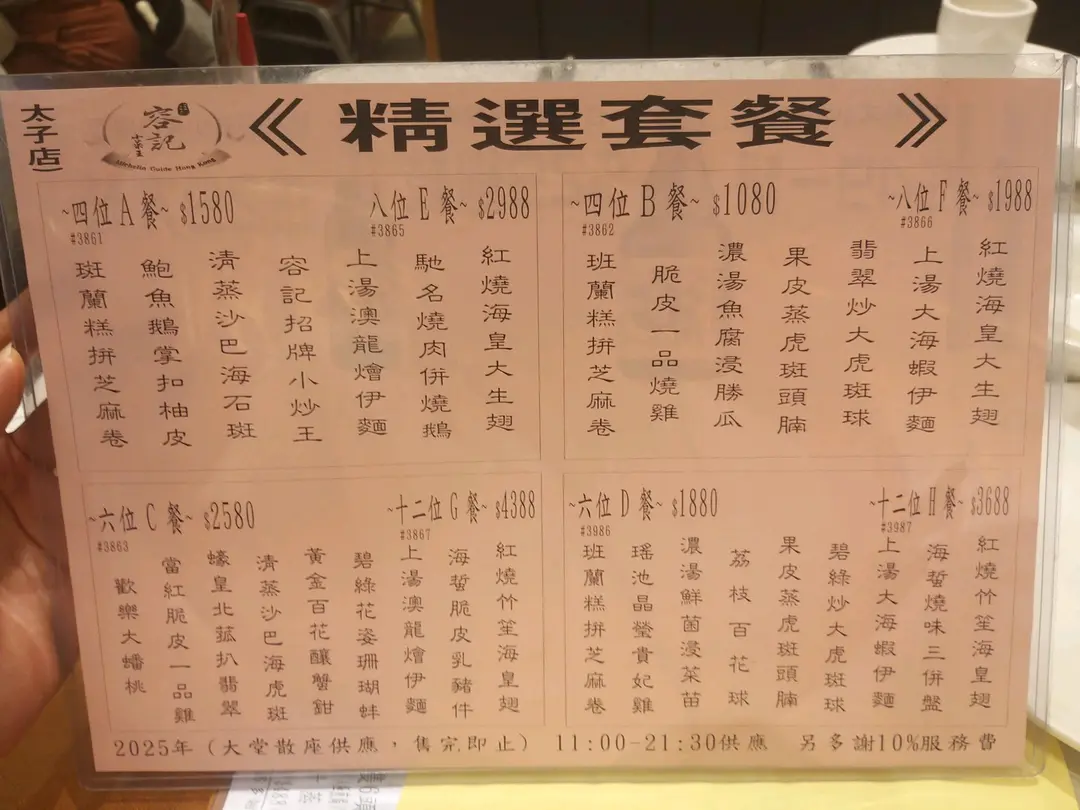 太子店)
容記
小菜王
Michelin Guide Hong Kong
《 精選套餐 》
~四位A餐~ $1580
#3861
八位E餐~ $2988
#3865
紅燒海皇大生翅
馳名燒肉併燒鵝
上湯澳龍燴伊麵
容記招牌小炒王
清蒸沙巴海石斑
鮑魚鵝掌扣柚皮
斑蘭糕拼芝麻卷
~四位B餐~ $1080
#3862
~八位F餐~ $1988
#3866
紅燒海皇大生翅
上湯大海蝦伊麵
翡翠炒大虎斑球
果皮蒸虎斑頭腩
濃湯魚腐浸勝瓜
脆皮一品燒雞
班蘭糕拼芝麻卷
~六位C餐~ $2580
#3863
~十二位G餐~ $4388
#3867
紅燒竹笙海皇翅
海蜇脆皮乳豬件
上湯澳龍燴伊麵
碧綠花姿珊瑚蚌
黃金百花釀蟹鉗
清蒸沙巴海虎斑
蠔皇北菰扒翡翠
當紅脆皮一品雞
歡樂大蟠桃
~六位D餐~ $1880
#3986
~十二位H餐~ $3688
#3987
紅燒竹笙海皇翅
海蜇燒味三併盤
上湯大海蝦伊麵
碧綠炒大虎斑球
果皮蒸虎斑頭腩
荔枝百花球
濃湯鮮菌浸菜苗
瑤池晶瑩貴妃雞
班蘭糕拼芝麻卷
2025年（大堂散座供應，售完即止） 11:00-21:30供應 另多謝10%服務費